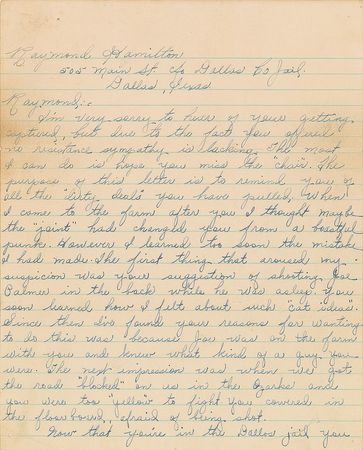 Raymond Hamilton
505 Main St. c/o Dallas Co Jail.
Dallas, Texas
Raymond:-
I'm very sorry to hear of your getting
captured, but due to the fact you offered
no resistance sympathy is lacking. The most
I can do is hope you miss the "chair." The
purpose of this letter is to remind you of
all the "dirty deals" you have pulled. When
I came to the farm after you I thought maybe
the "joint" had changed you from a boastful
punk. However I learned too soon the mistake
I had made. The first thing that aroused my
suspicion was your suggestion of shooting Joe
Palmer in the back while he was asleep. You
soon learned how I felt about such "cat ideas".
Since then I've found your reasons for wanting
to do this was because Joe was on the farm
with you and knew what kind of a guy you
were. The next impression was when we got
the road "blocked" on us in the Ozarks and
you were too "yellow" to fight. You cowered in
the floorboard, afraid of being shot.
Now that you're in the Dallas jail you